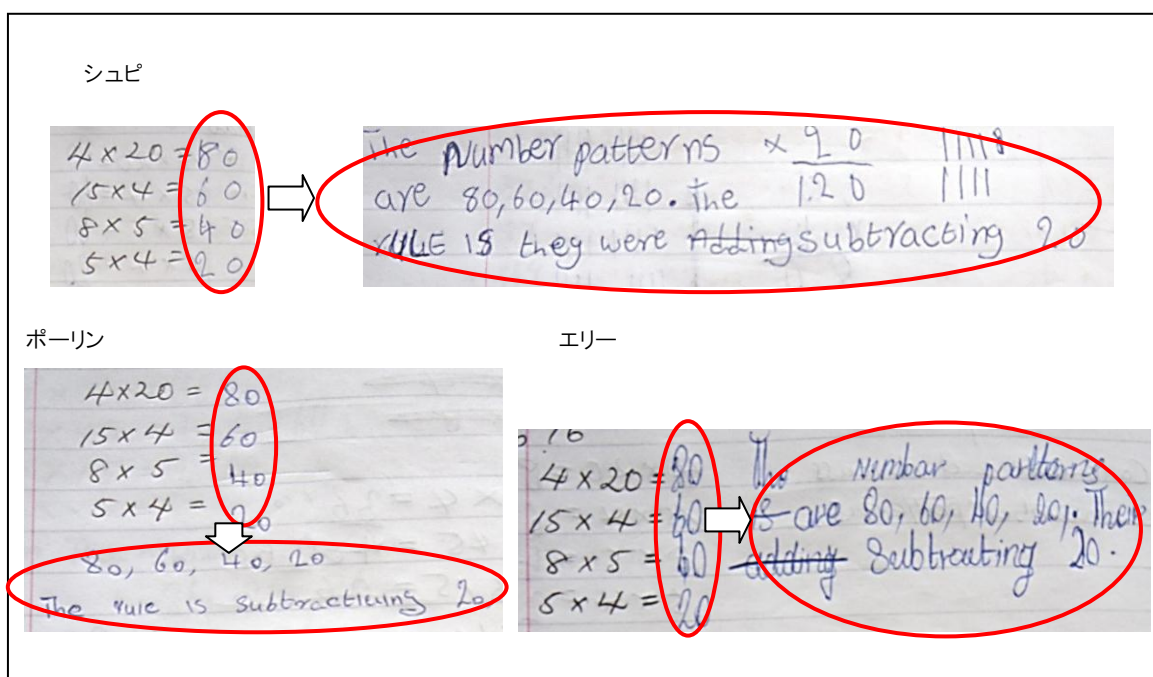 シュピ
4 × 20 = 80
15 × 4 = 60
8 × 5 = 40
5 × 4 = 20
The Number patterns
are 80, 60, 40, 20. The
RULE IS they were Adding subtracting 20
× 20
120
11118
1111
ポーリン
4 × 20 = 80
15 × 4 = 60
8 × 5 = 40
5 × 4 = 20
80, 60, 40, 20
The rule is subtractieing 20
エリー
16
4 × 20 = 80
15 × 4 = 60
8 × 5 = 40
5 × 4 = 20
The nimbar partterns
is are 80, 60, 40, 20,. Their
adding Subtrauting 20.